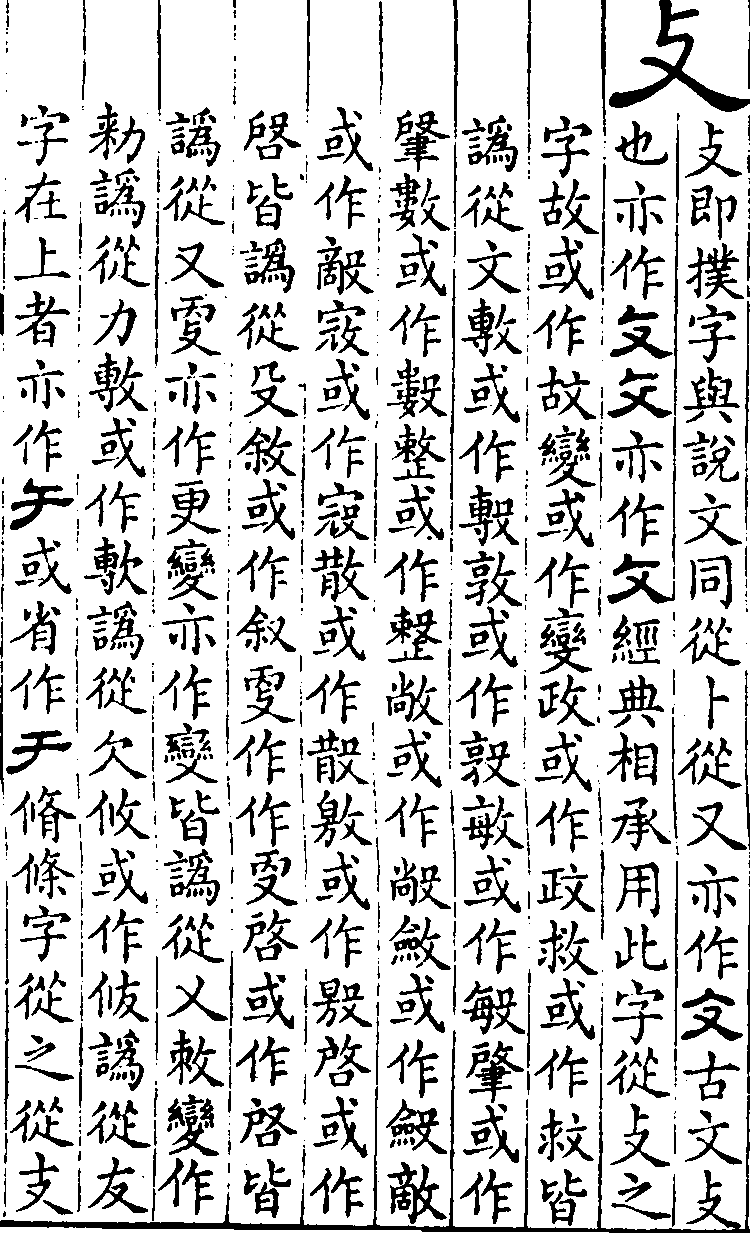 攴
攴即撲字與說文同從卜從又亦作攵古文攴
也亦作攵攵亦作攵經典相承用此字從攴之
字故或作故變或作變政或作政救或作救皆
譌從文敷或作敦或作敏或作肇或作
肇數或作整或作敞或作斂或作敵
或作寇或作散或作敫或作啓或作
啓皆譌從殳敘或作叙㪅作作㪅啓或作启皆
譌從又㪅亦作更變亦作變皆譌從乂敕變作
勑譌從力敷或作譌從欠攸或作譌從友
字在上者亦作或省作脩條字從之從支